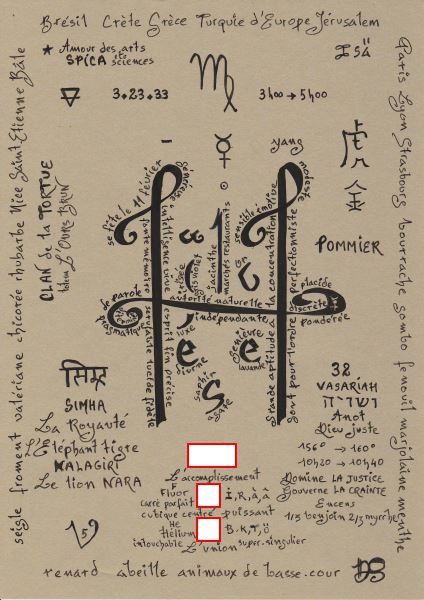 Brésil Crète Grèce Turquie d'Europe Jérusalem
seigle froment valériane chicorée rhubarbe Nice Saint Etienne Bâle
Paris Lyon Strasbourg bourrache gombo fenouil marjolaine menthe
★ Amour des arts
SPICA et sciences
♍
3+23+33
3h00 → 5h00
-
☿
yang
虎
金
CLAN de la TORTUE
totem L'OURS BRUN
POMMIER
se fête le 11 février
généreuse
intelligence vive esprit fin précise
forte mémoire serviable lucide fidèle
jacinthe
marchés restaurants
sensible émotive
modeste
grande aptitude à la concentration perfectionniste
goût pour l'ordre
placide
discrète
pondérée
de parole
pragmatique
autorité naturelle
indépendante
luxe
diurne
genièvre
lavande
saphir
agate
सिम्ह
SIMHA
La Royauté
L'Eléphant tigre
NALAGIRI
Le lion NARA
38
VASARIAH
ושריה
Anot
Dieu juste
156° → 160°
10h20 → 10h40
Domine LA JUSTICE
Gouverne LA CRAINTE
Encens
1/3 benjoin 2/3 myrrhe
L'accomplissement
F
Fluor
I, R, A, Â
carré parfait
cubique centré puissant
HE
Hélium
B.K.T, Ö
intouchable super-singulier
L'union
renard abeille animaux de basse.cour